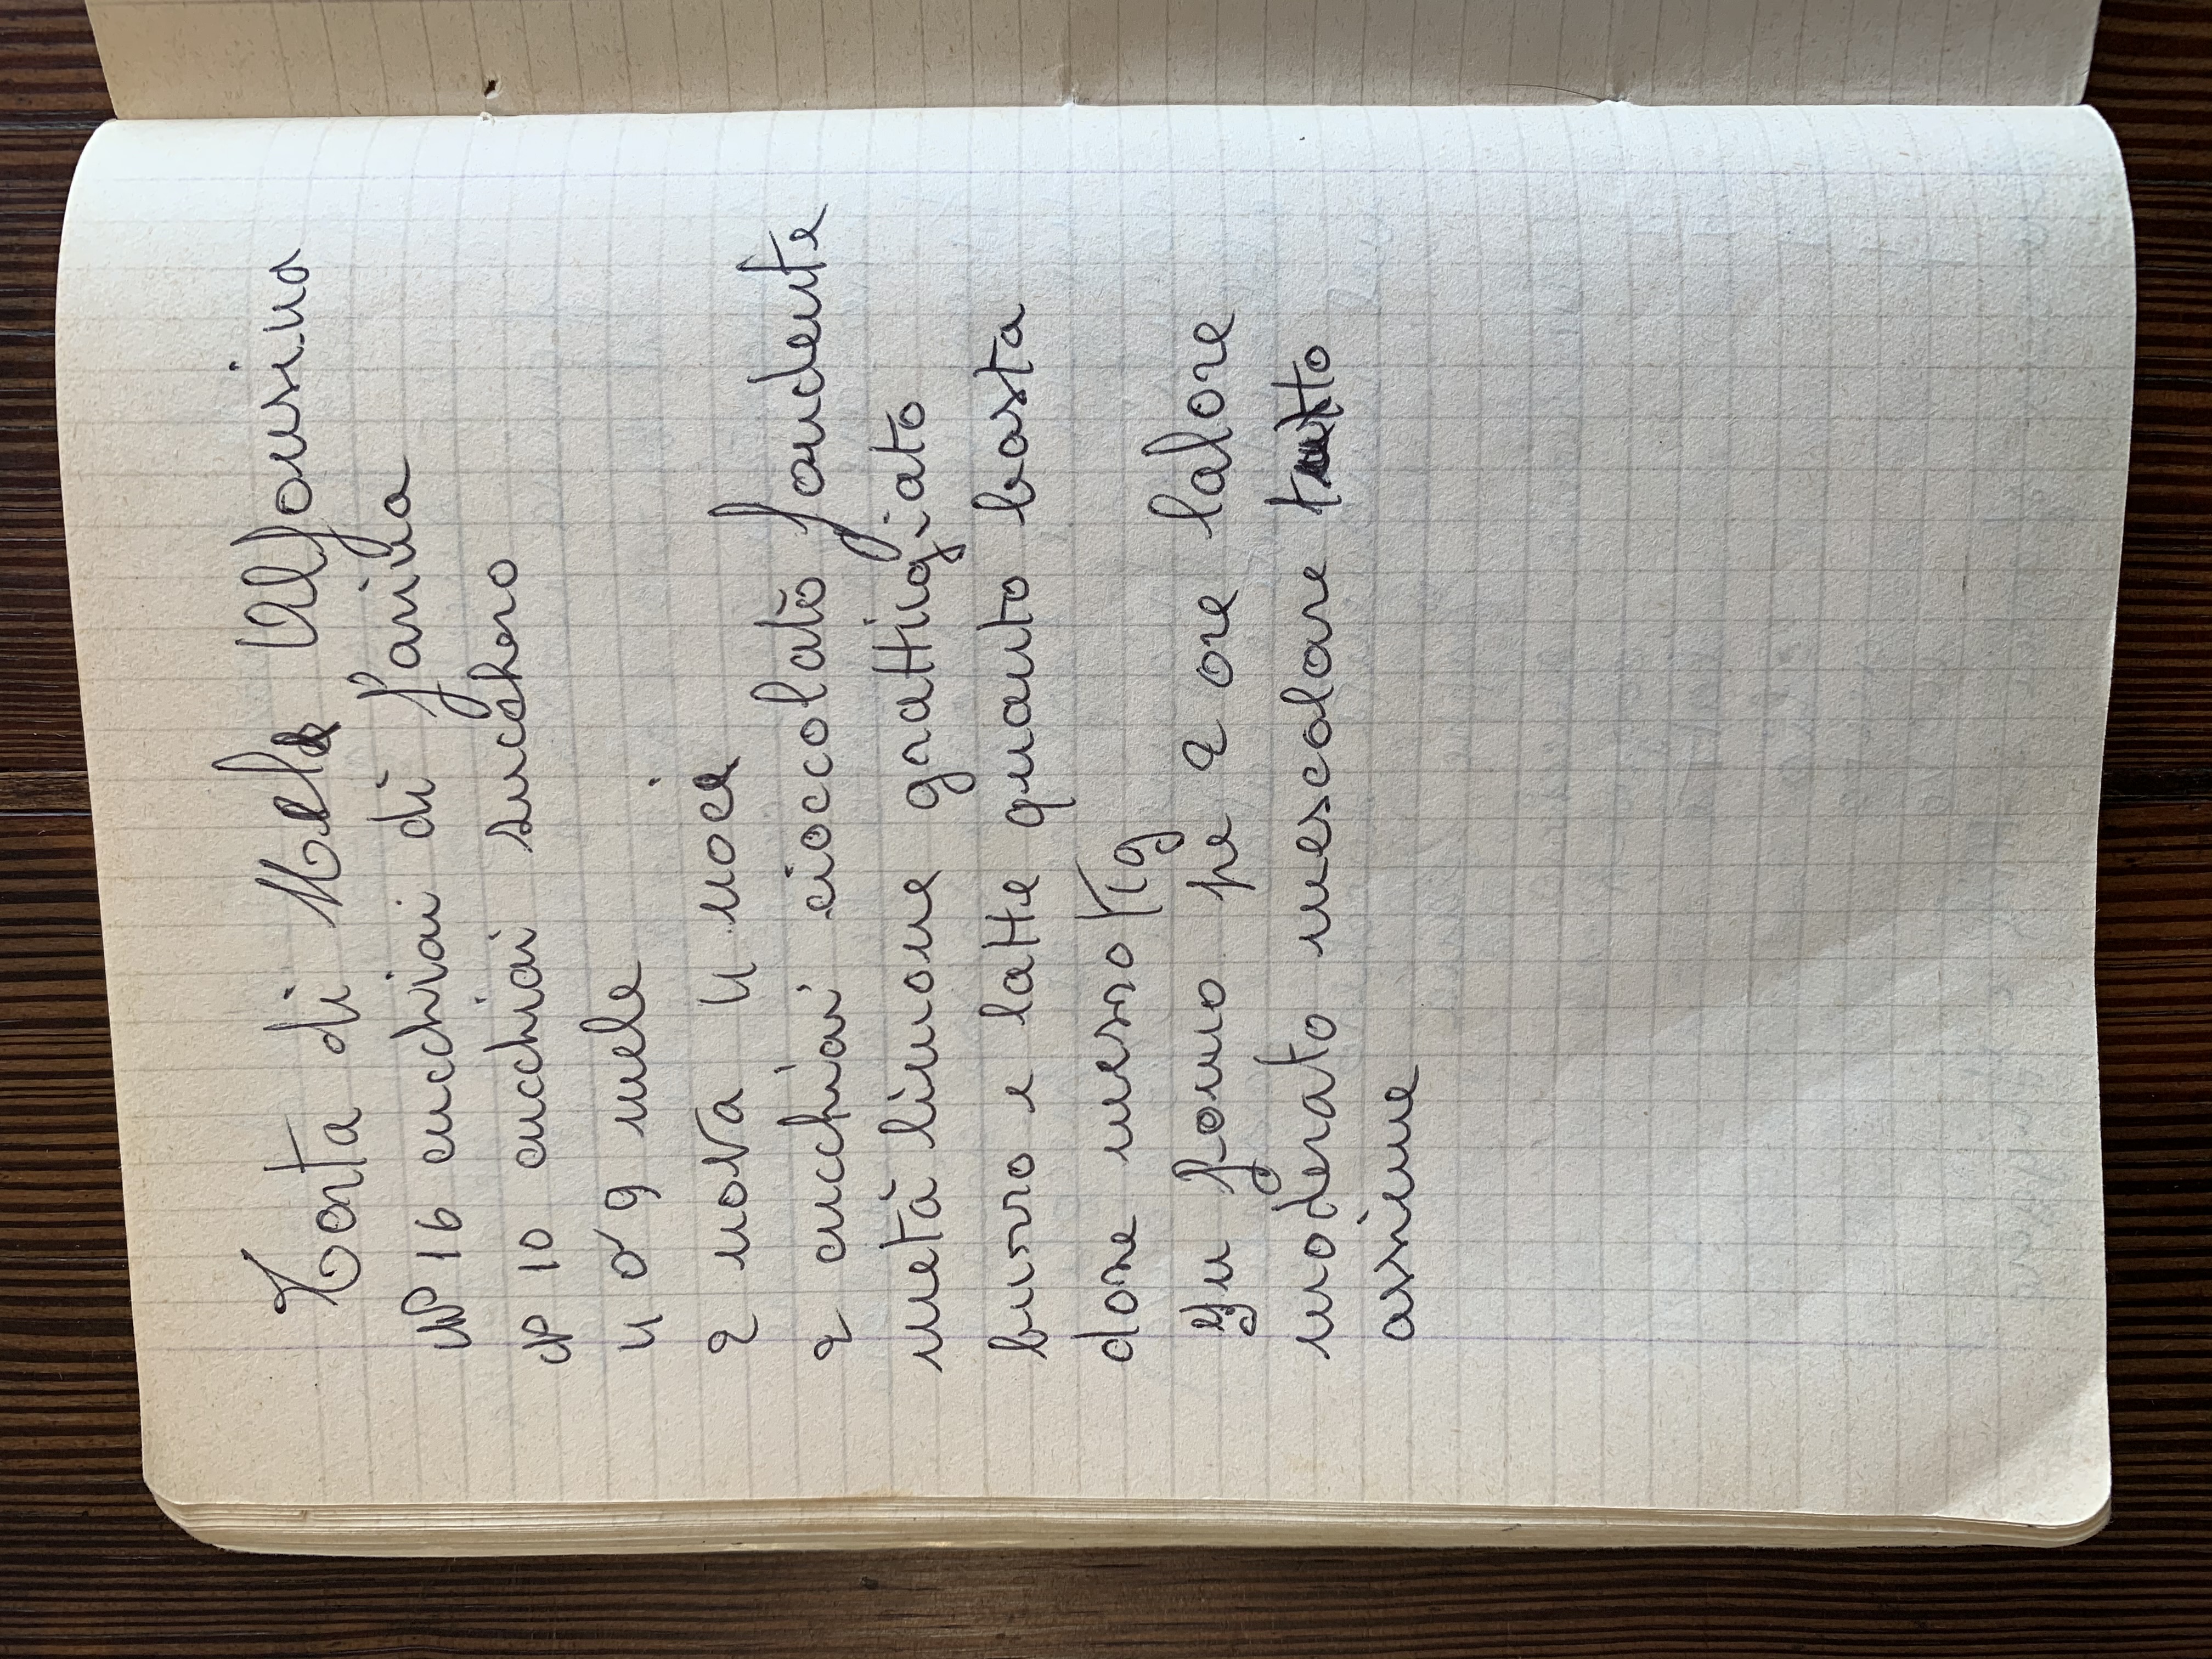 Torta di Mele Alfonsina
N° 16 cucchiai di farina
N° 10 cucchiai zucchero
4 o 9 mele
2 uova 4 noci
2 cucchiai cioccolato fondente
metà limone grattugiato
burro e latte quanto basta
dose mezzo Kg
In forno pe 2 ore lalore
moderato mescolare tutto
assieme